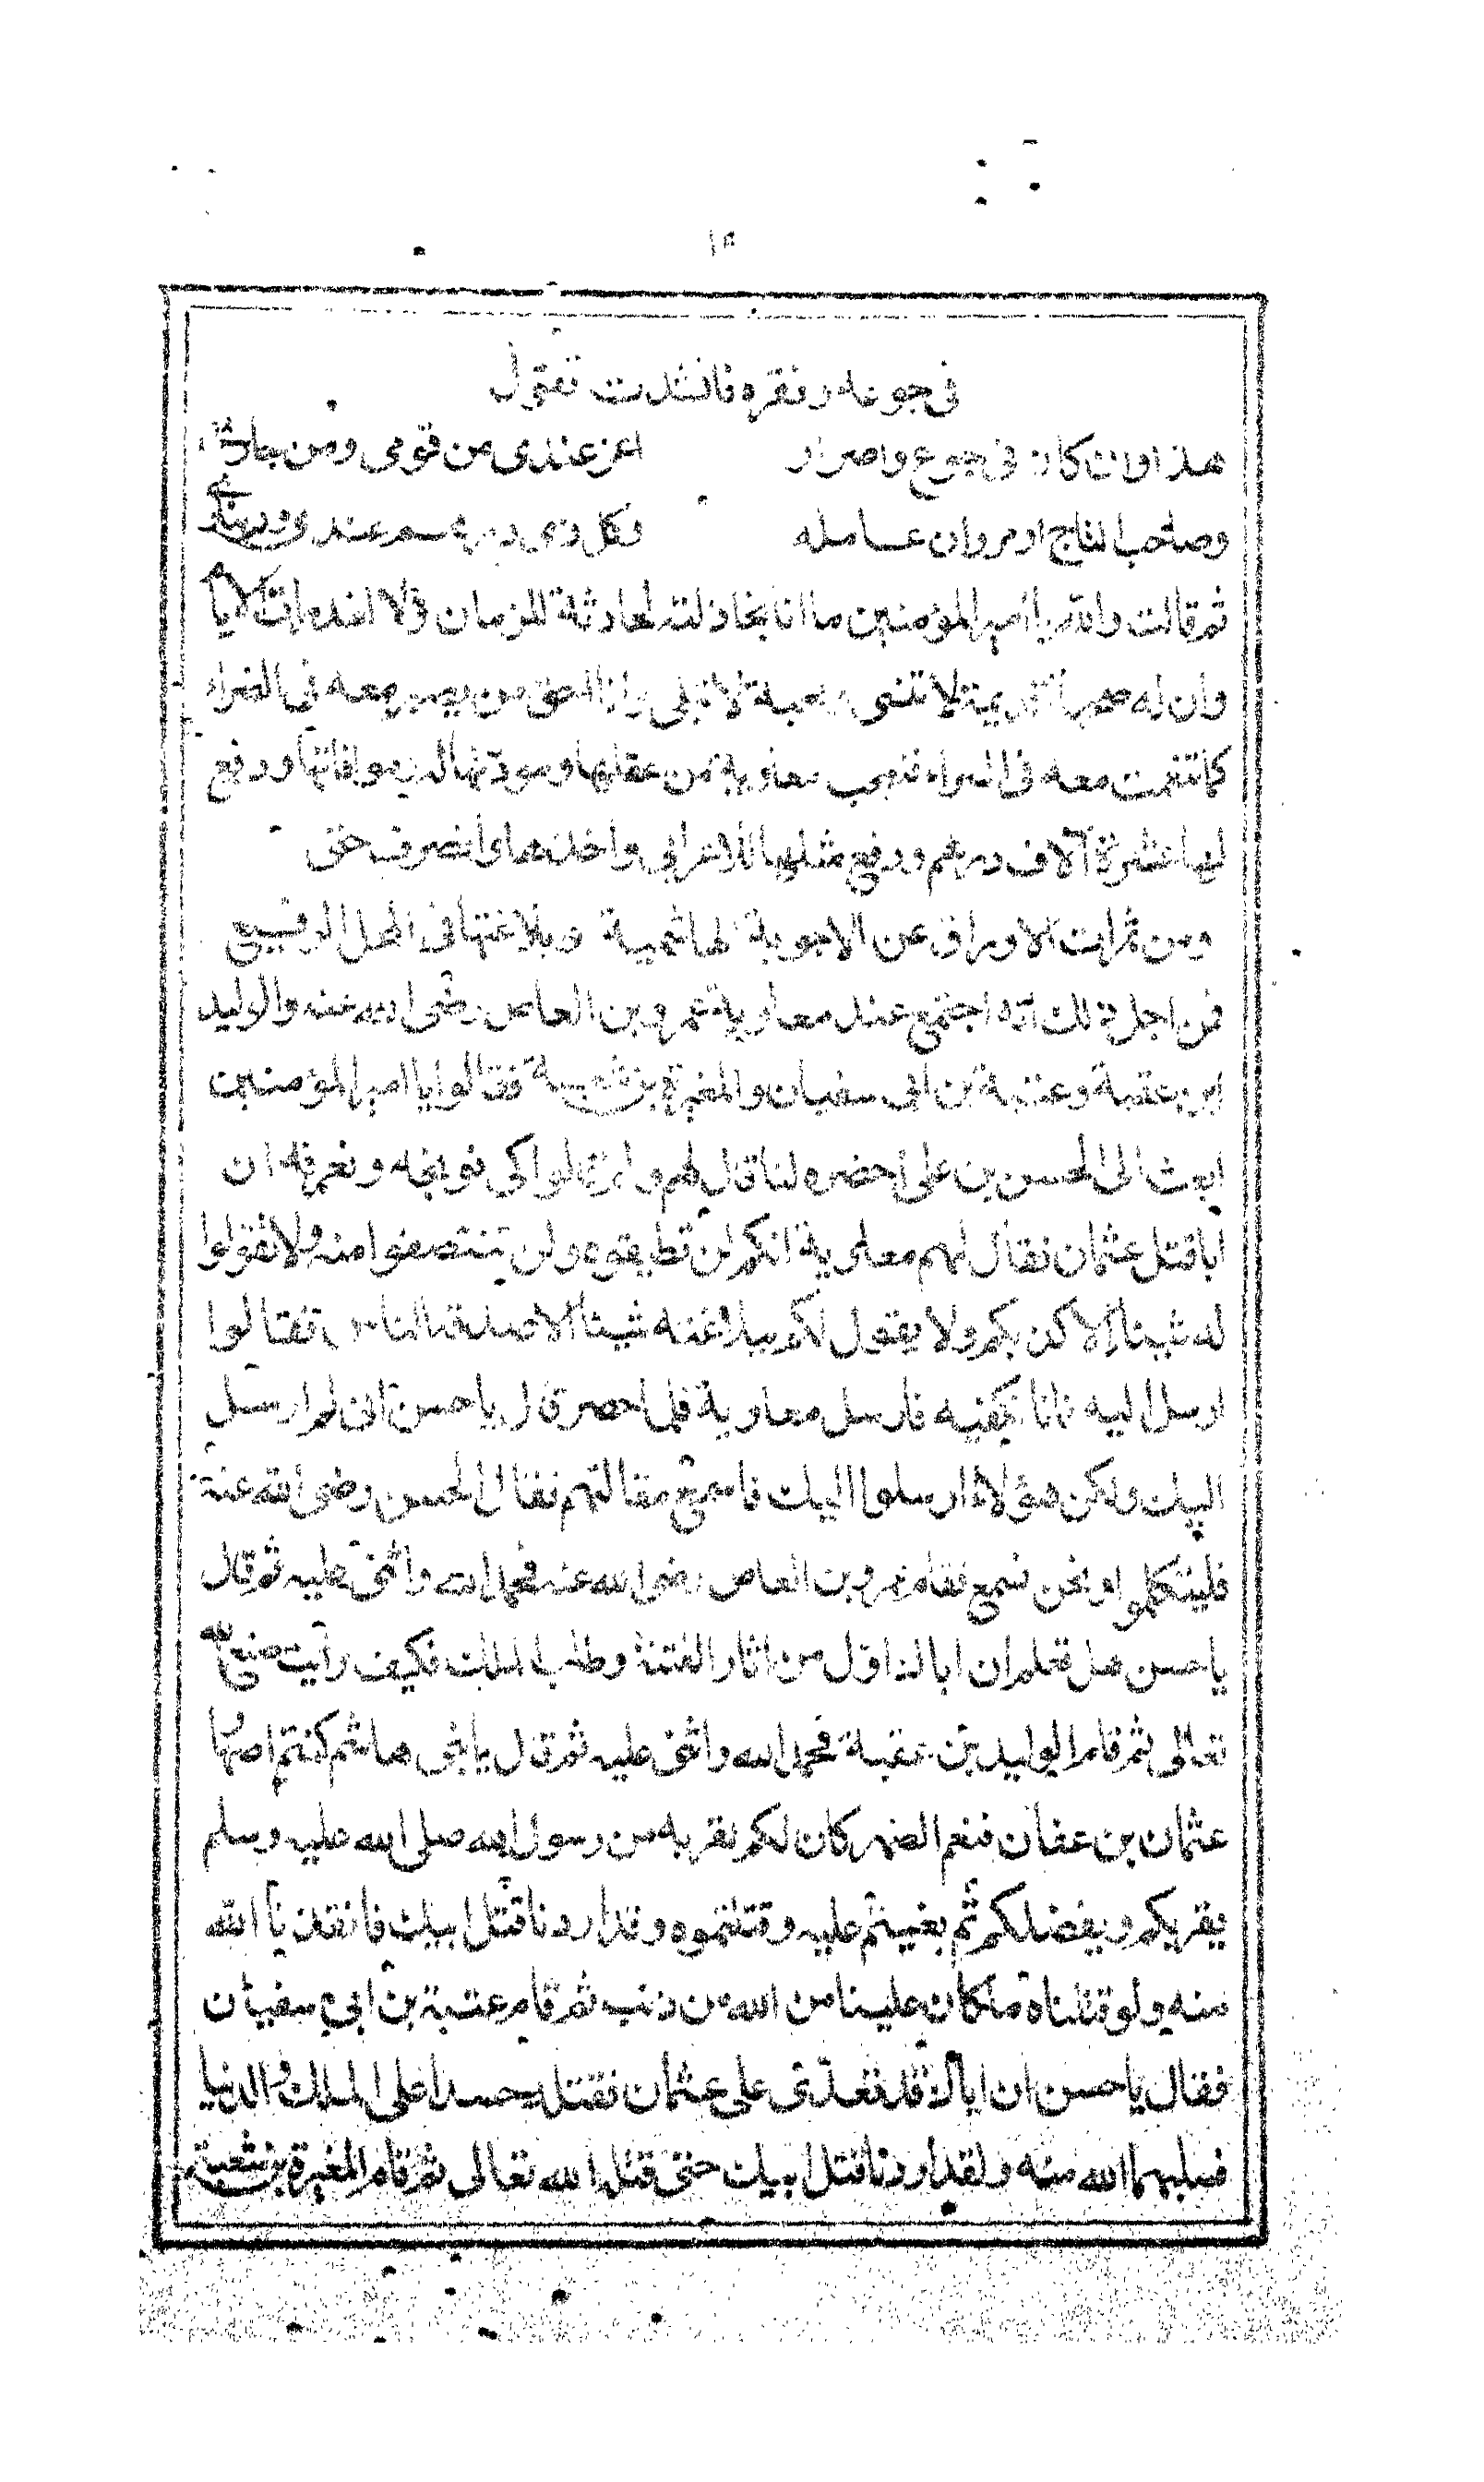 ١٥
فى جوعه وفقره فانشدت تقول
هذا وان كان فى جوع واضرار
اعز عندى من قومى ومن جارى
وصاحب التاج او مروان عامله
وكل ذى درهم عندى ودينار
ثم قالت والله يا امير المؤمنين ما انا بخاذلته لحادثة الزمان ولا لغدرات الايام
وان له صحبة قديمة لا تنسى ومحبة لا تبلى وانا احق من يصبر معه فى الضراء
كما تنعمت معه فى السراء فتعجب معاوية من عقلها ومودتها له وموافاتها ودفع
لها عشرة آلاف درهم ودفع مثلها للاعرابى واخذها وانصرف حتى
ومن ثمرات الاوراق عن الاجوبة الهاشمية وبلاغتها فى المحل الرفيع
فمن اجل ذلك انه اجتمع عند معاوية عمرو بن العاص رضى الله عنه والوليد
ابن عقبة وعتبة بن ابى سفيان والمغيرة بن شعبة فقالوا يا امير المؤمنين
ابعث الى الحسن بن على احضره لنا قال لهم ولم قالوا كى نوبخه ونعرفه ان
اباه قتل عثمان فقال لهم معاوية انكم لن تطيقوه ولن تنتصفوا منه ولا تقولوا
له شيئا الا كذبكم ولا يقول لكم ببلاغته شيئا الا صدقه الناس فقالوا
ارسل اليه فانا نكفيه فارسل معاوية فلما حضر قال يا حسن انى لم ارسل
اليك ولكن هؤلاء ارسلوا اليك فاسمع مقالتهم فقال الحسن رضى الله عنه
فليتكلموا ونحن نسمع فقام عمرو بن العاص رضى الله عنه فحمد الله واثنى عليه ثم قال
يا حسن هل تعلم ان اباك اول من اثار الفتنة وطلب الملك فكيف رأيت صنع الله
تعالى ثم قام الوليد بن عقبة فحمد الله واثنى عليه ثم قال يا بنى هاشم كنتم اصهار
عثمان بن عفان فنعم الصهر كان لكم لقربه من رسول الله صلى الله عليه وسلم
يقربكم ويفضلكم ثم بغيتم عليه وقتلتموه وقد اردنا قتل ابيك فانقذنا الله
منه ولو قتلناه ما كان علينا من الله من ذنب ثم قام عتبة بن ابى سفيان
فقال يا حسن ان اباك قد تعدى على عثمان فقتله حسدا على الملك والدنيا
فسلبهما الله منه ولقد اردنا قتل ابيك حتى قتله الله تعالى ثم قام المغيرة بن شعبة